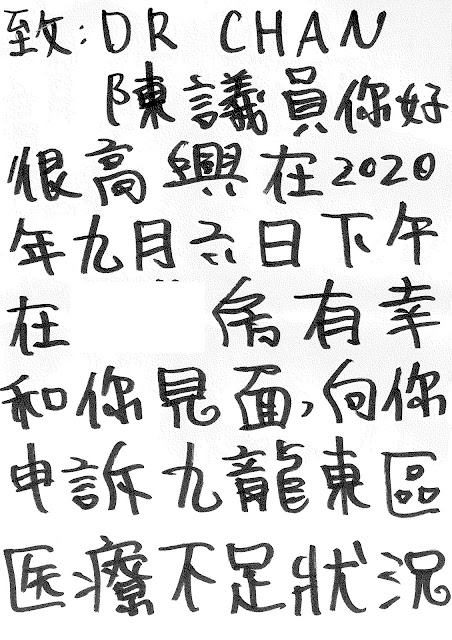 致:DR CHAN
陳議員你好
恨高興在2020
年九月六日下午
在 有幸
和你見面,向你
申訴九龍東區
医療不足狀況